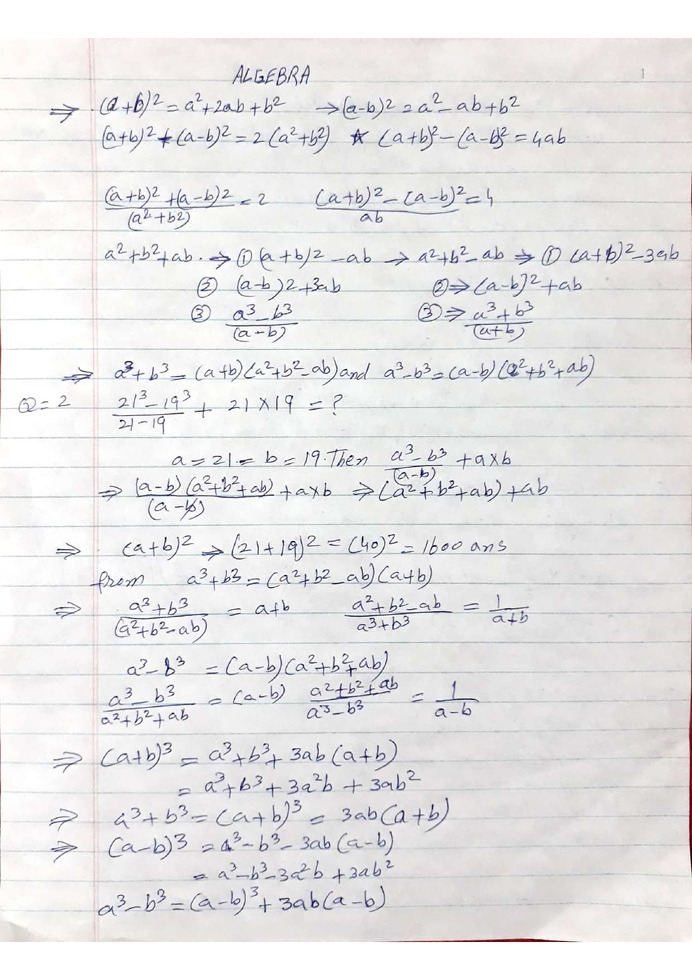 ALGEBRA 1
⇒ (a+b)² = a²+2ab+b² → (a-b)² = a²-ab+b²
(a+b)² + (a-b)² = 2(a²+b²) * (a+b)² - (a-b)² = 4ab
(a+b)² + (a-b)2 / (a²+b2) = 2 (a+b)² - (a-b)² / ab = 4
a²+b²+ab. → ① (a+b)2 - ab → a²+b²-ab ⇒ ① (a+b)² - 3ab
② (a-b)2 + 3ab ②⇒ (a-b)² + ab
③ a³-b³ / (a-b) ③⇒ a³+b³ / (a+b)
⇒ a³+b³ = (a+b)(a²+b²-ab) and a³-b³ = (a-b)(a²+b²+ab)
Q=2 21³-19³ / 21-19 + 21×19 = ?
a = 21 = b = 19. Then a³-b³ / (a-b) + a×b
⇒ (a-b)(a²+b²+ab) / (a-b) + a×b ⇒ (a²+b²+ab) + ab
⇒ (a+b)² → (21+19)² = (40)² = 1600 ans
from a³+b³ = (a²+b²-ab)(a+b)
⇒ a³+b³ / (a²+b²-ab) = a+b a²+b²-ab / a³+b³ = 1 / a+b
a³-b³ = (a-b)(a²+b²+ab)
a³-b³ / a²+b²+ab = (a-b) a²+b²+ab / a³-b³ = 1 / a-b
⇒ (a+b)³ = a³+b³+3ab(a+b)
= a³+b³+3a²b+3ab²
⇒ a³+b³ = (a+b)³ = 3ab(a+b)
⇒ (a-b)³ = a³-b³-3ab(a-b)
= a³-b³-3a²b+3ab²
a³-b³ = (a-b)³+3ab(a-b)